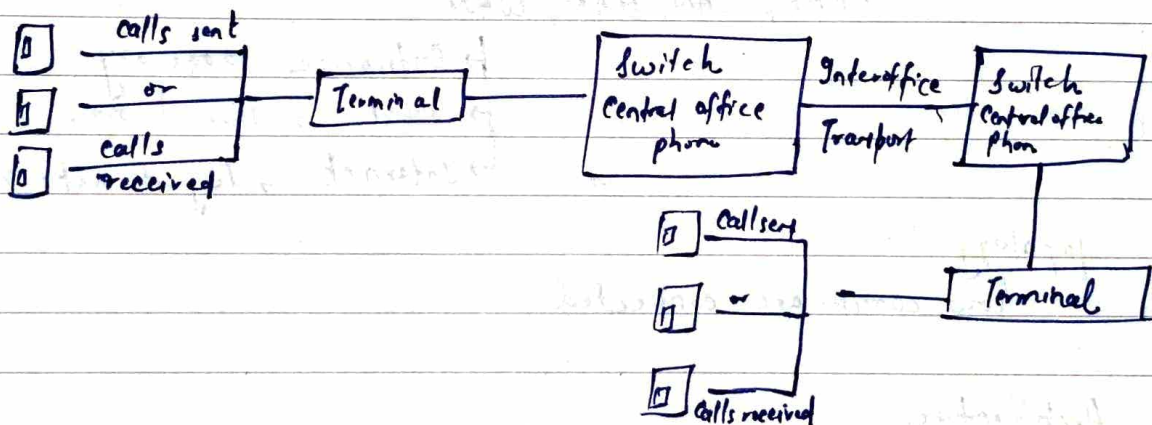 calls sent
or
calls
received
Terminal
Switch
Central office
phone
Interoffice
Transport
Switch
Central office
Phon
Call sent
or
Calls received
Terminal